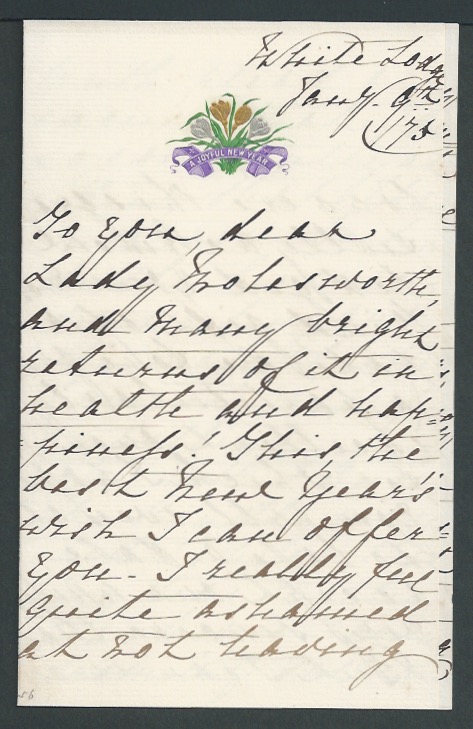 White Lodge
Jany. 9th
/75
A JOYFUL NEW YEAR
To you, dear
Lady Molesworth,
and many bright
returns of it in
health and hap-
-piness! This, the
best New Year's
wish I can offer
you - I really feel
quite ashamed
at not having